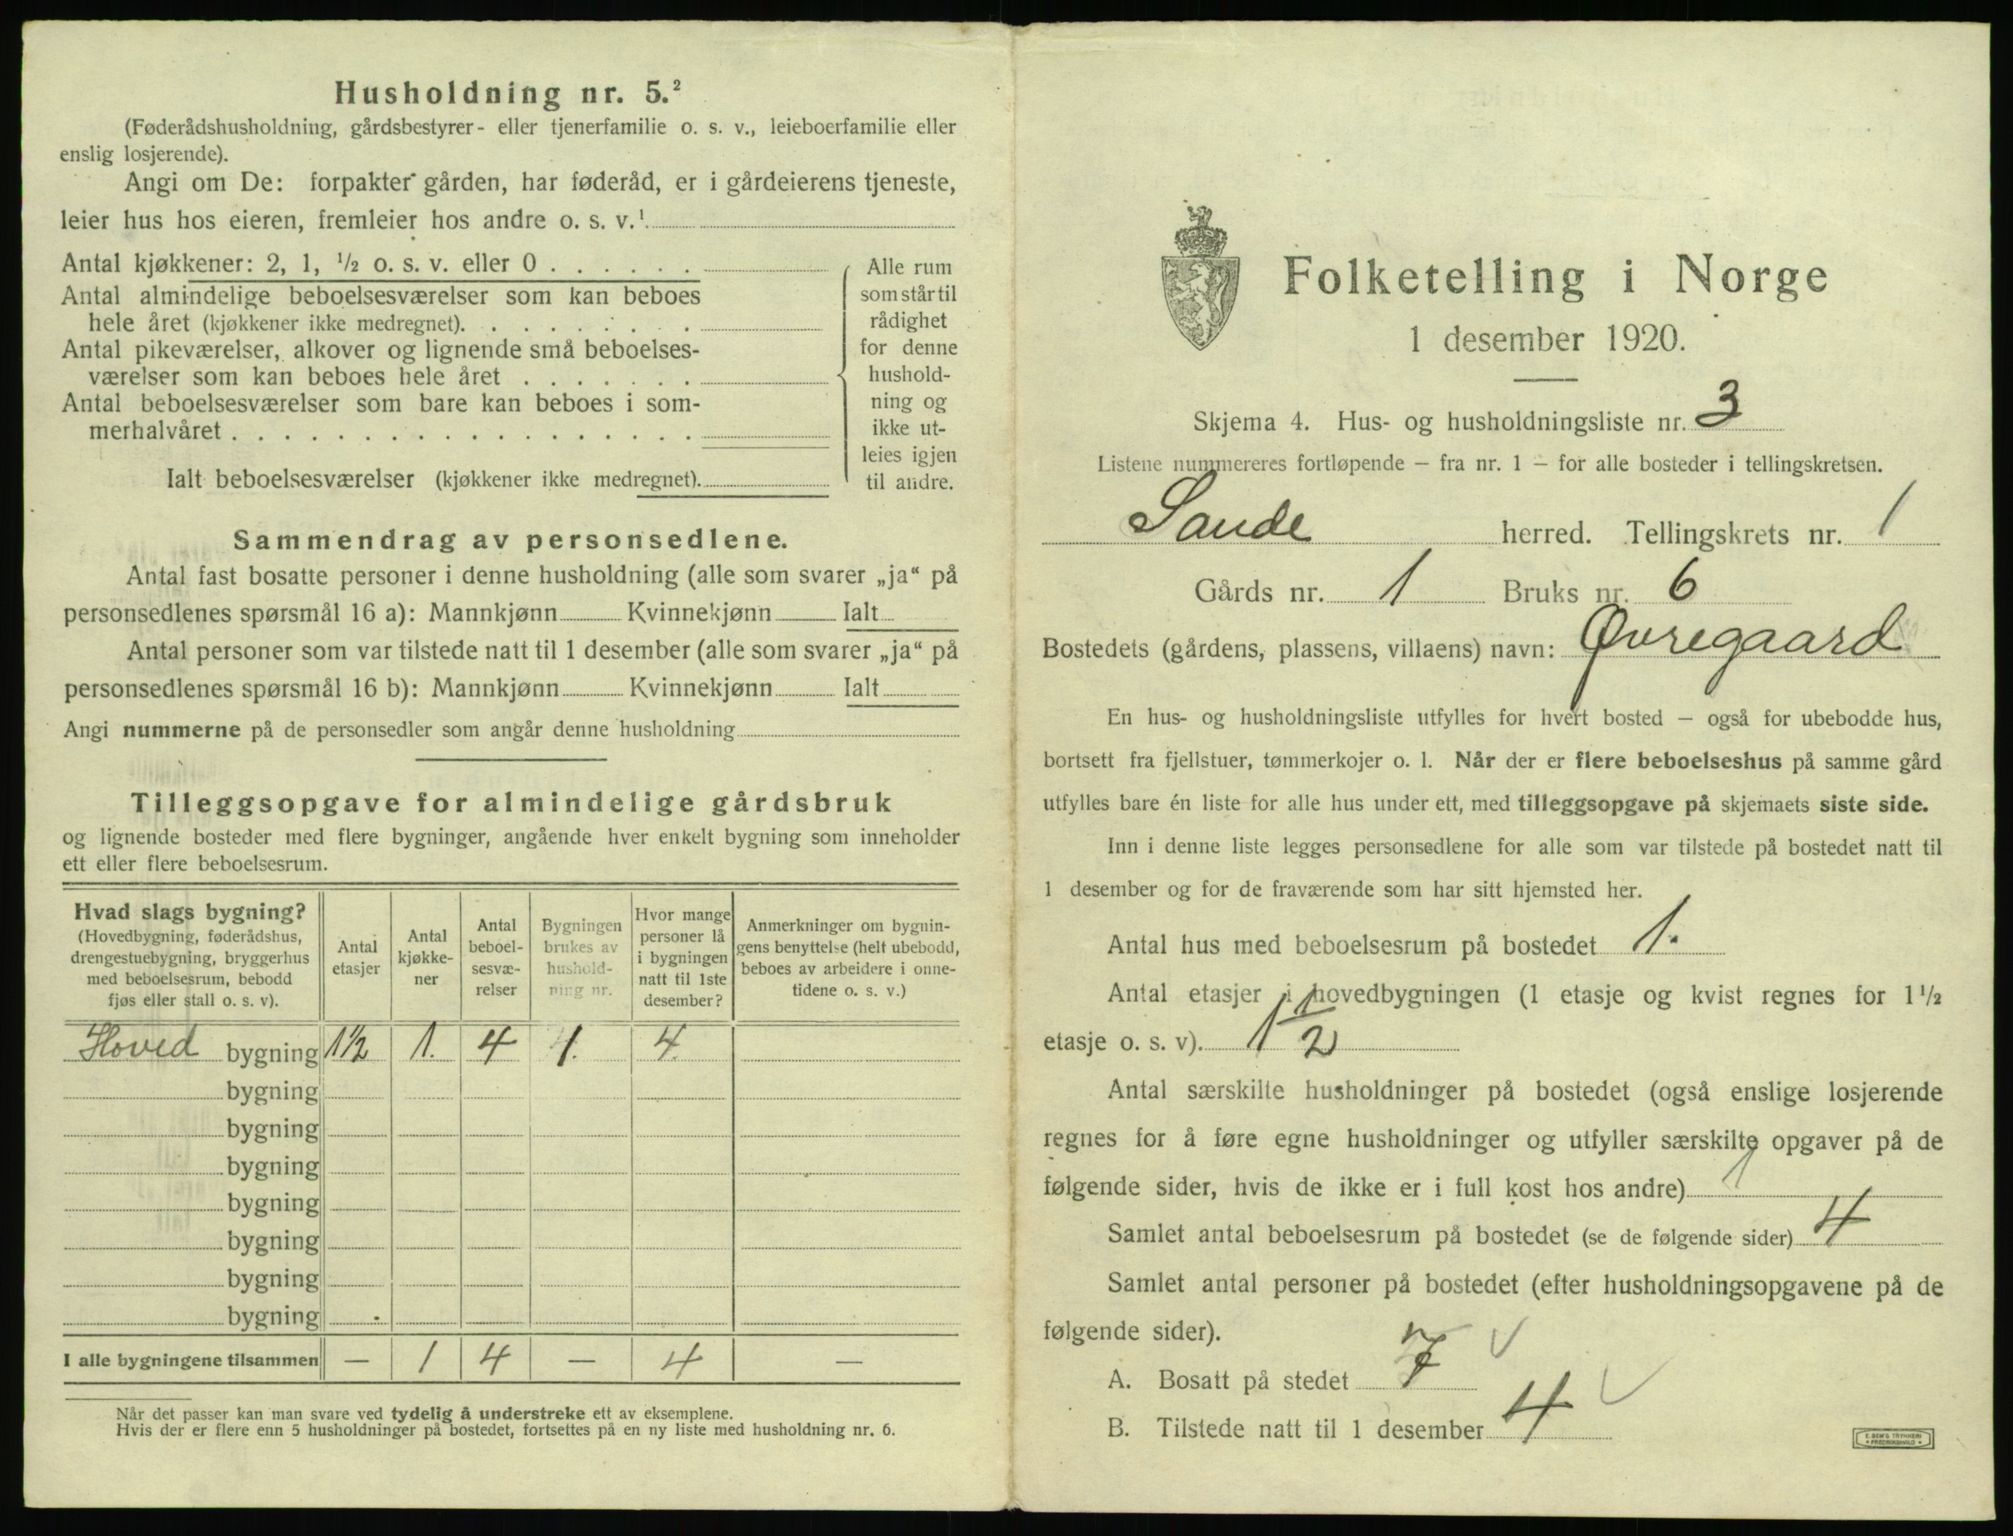 Husholdning nr. 5.²
(Føderådshusholdning, gårdsbestyrer- eller tjenerfamilie o. s. v., leieboerfamilie eller
enslig losjerende).
Angi om De: forpakter gården, har føderåd, er i gårdeierens tjeneste,
leier hus hos eieren, fremleier hos andre o. s. v.¹
Antal kjøkkener: 2, 1, ½ o. s. v. eller 0 . . . . . .
Antal almindelige beboelsesværelser som kan beboes
hele året (kjøkkener ikke medregnet). . . . . . . .
Antal pikeværelser, alkover og lignende små beboelses-
værelser som kan beboes hele året . . . . . . .
Antal beboelsesværelser som bare kan beboes i som-
merhalvåret . . . . . . . . . . . . . . . . . .
Ialt beboelsesværelser (kjøkkener ikke medregnet).
Alle rum
som står til
rådighet
for denne
hushold-
ning og
ikke ut-
leies igjen
til andre.
Sammendrag av personsedlene.
Antal fast bosatte personer i denne husholdning (alle som svarer „ja“ på
personsedlenes spørsmål 16 a): Mannkjønn Kvinnekjønn Ialt
Antal personer som var tilstede natt til 1 desember (alle som svarer „ja“ på
personsedlenes spørsmål 16 b): Mannkjønn Kvinnekjønn Ialt
Angi nummerne på de personsedler som angår denne husholdning
Tilleggsopgave for almindelige gårdsbruk
og lignende bosteder med flere bygninger, angående hver enkelt bygning som inneholder
ett eller flere beboelsesrum.
Hvad slags bygning?
(Hovedbygning, føderådshus,
drengestuebygning, bryggerhus
med beboelsesrum, bebodd
fjøs eller stall o. s. v).
Antal
etasjer
Antal
kjøkke-
ner
Antal
beboel-
sesvæ-
relser
Bygningen
brukes av
hushold-
ning nr.
Hvor mange
personer lå
i bygningen
natt til 1ste
desember?
Anmerkninger om bygnin-
gens benyttelse (helt ubebodd,
beboes av arbeidere i onne-
tidene o. s. v.)
Hoved bygning 1½ 1. 4 1. 4.
bygning
bygning
bygning
bygning
bygning
bygning
bygning
I alle bygningene tilsammen — 1 4 — 4 —
Når det passer kan man svare ved tydelig å understreke ett av eksemplene.
Hvis der er flere enn 5 husholdninger på bostedet, fortsettes på en ny liste med husholdning nr. 6.
Folketelling i Norge
1 desember 1920.
Skjema 4. Hus- og husholdningsliste nr. 3
Listene nummereres fortløpende — fra nr. 1 — for alle bosteder i tellingskretsen.
Sande herred. Tellingskrets nr. 1
Gårds nr. 1 Bruks nr. 6
Bostedets (gårdens, plassens, villaens) navn: Øvregaard
En hus- og husholdningsliste utfylles for hvert bosted — også for ubebodde hus,
bortsett fra fjellstuer, tømmerkojer o. l. Når der er flere beboelseshus på samme gård
utfylles bare én liste for alle hus under ett, med tilleggsopgave på skjemaets siste side.
Inn i denne liste legges personsedlene for alle som var tilstede på bostedet natt til
1 desember og for de fraværende som har sitt hjemsted her.
Antal hus med beboelsesrum på bostedet 1.
Antal etasjer i hovedbygningen (1 etasje og kvist regnes for 1½
etasje o. s. v). 1½
Antal særskilte husholdninger på bostedet (også enslige losjerende
regnes for å føre egne husholdninger og utfyller særskilte opgaver på de
følgende sider, hvis de ikke er i full kost hos andre) 1
Samlet antal beboelsesrum på bostedet (se de følgende sider) 4
Samlet antal personer på bostedet (efter husholdningsopgavene på de
følgende sider).
A. Bosatt på stedet 7 ✓
B. Tilstede natt til 1 desember 4 ✓